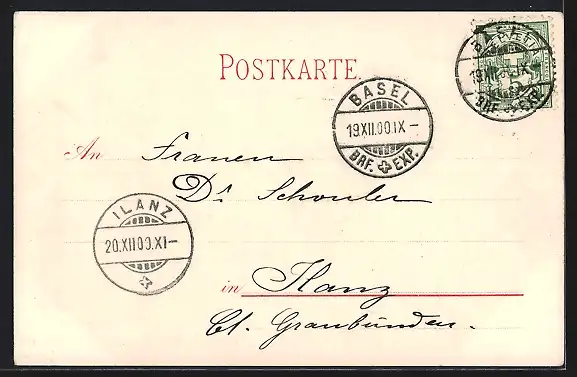 POSTKARTE.
BASEL
19.XII.00.IX–
BRF. EXP.
BASEL
19.XII.00.IX–
BRF. EXP.
An Frauen
Dr Schouler
ILANZ
20.XII.00.XI–
in Ilanz
Ct. Graubünden.